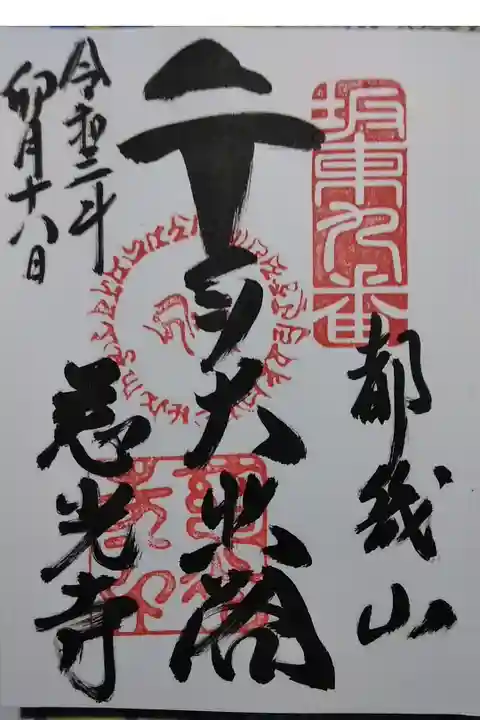 坂東九番
都幾山
千手大悲閣
慈光寺
令和二年
卯月十八日